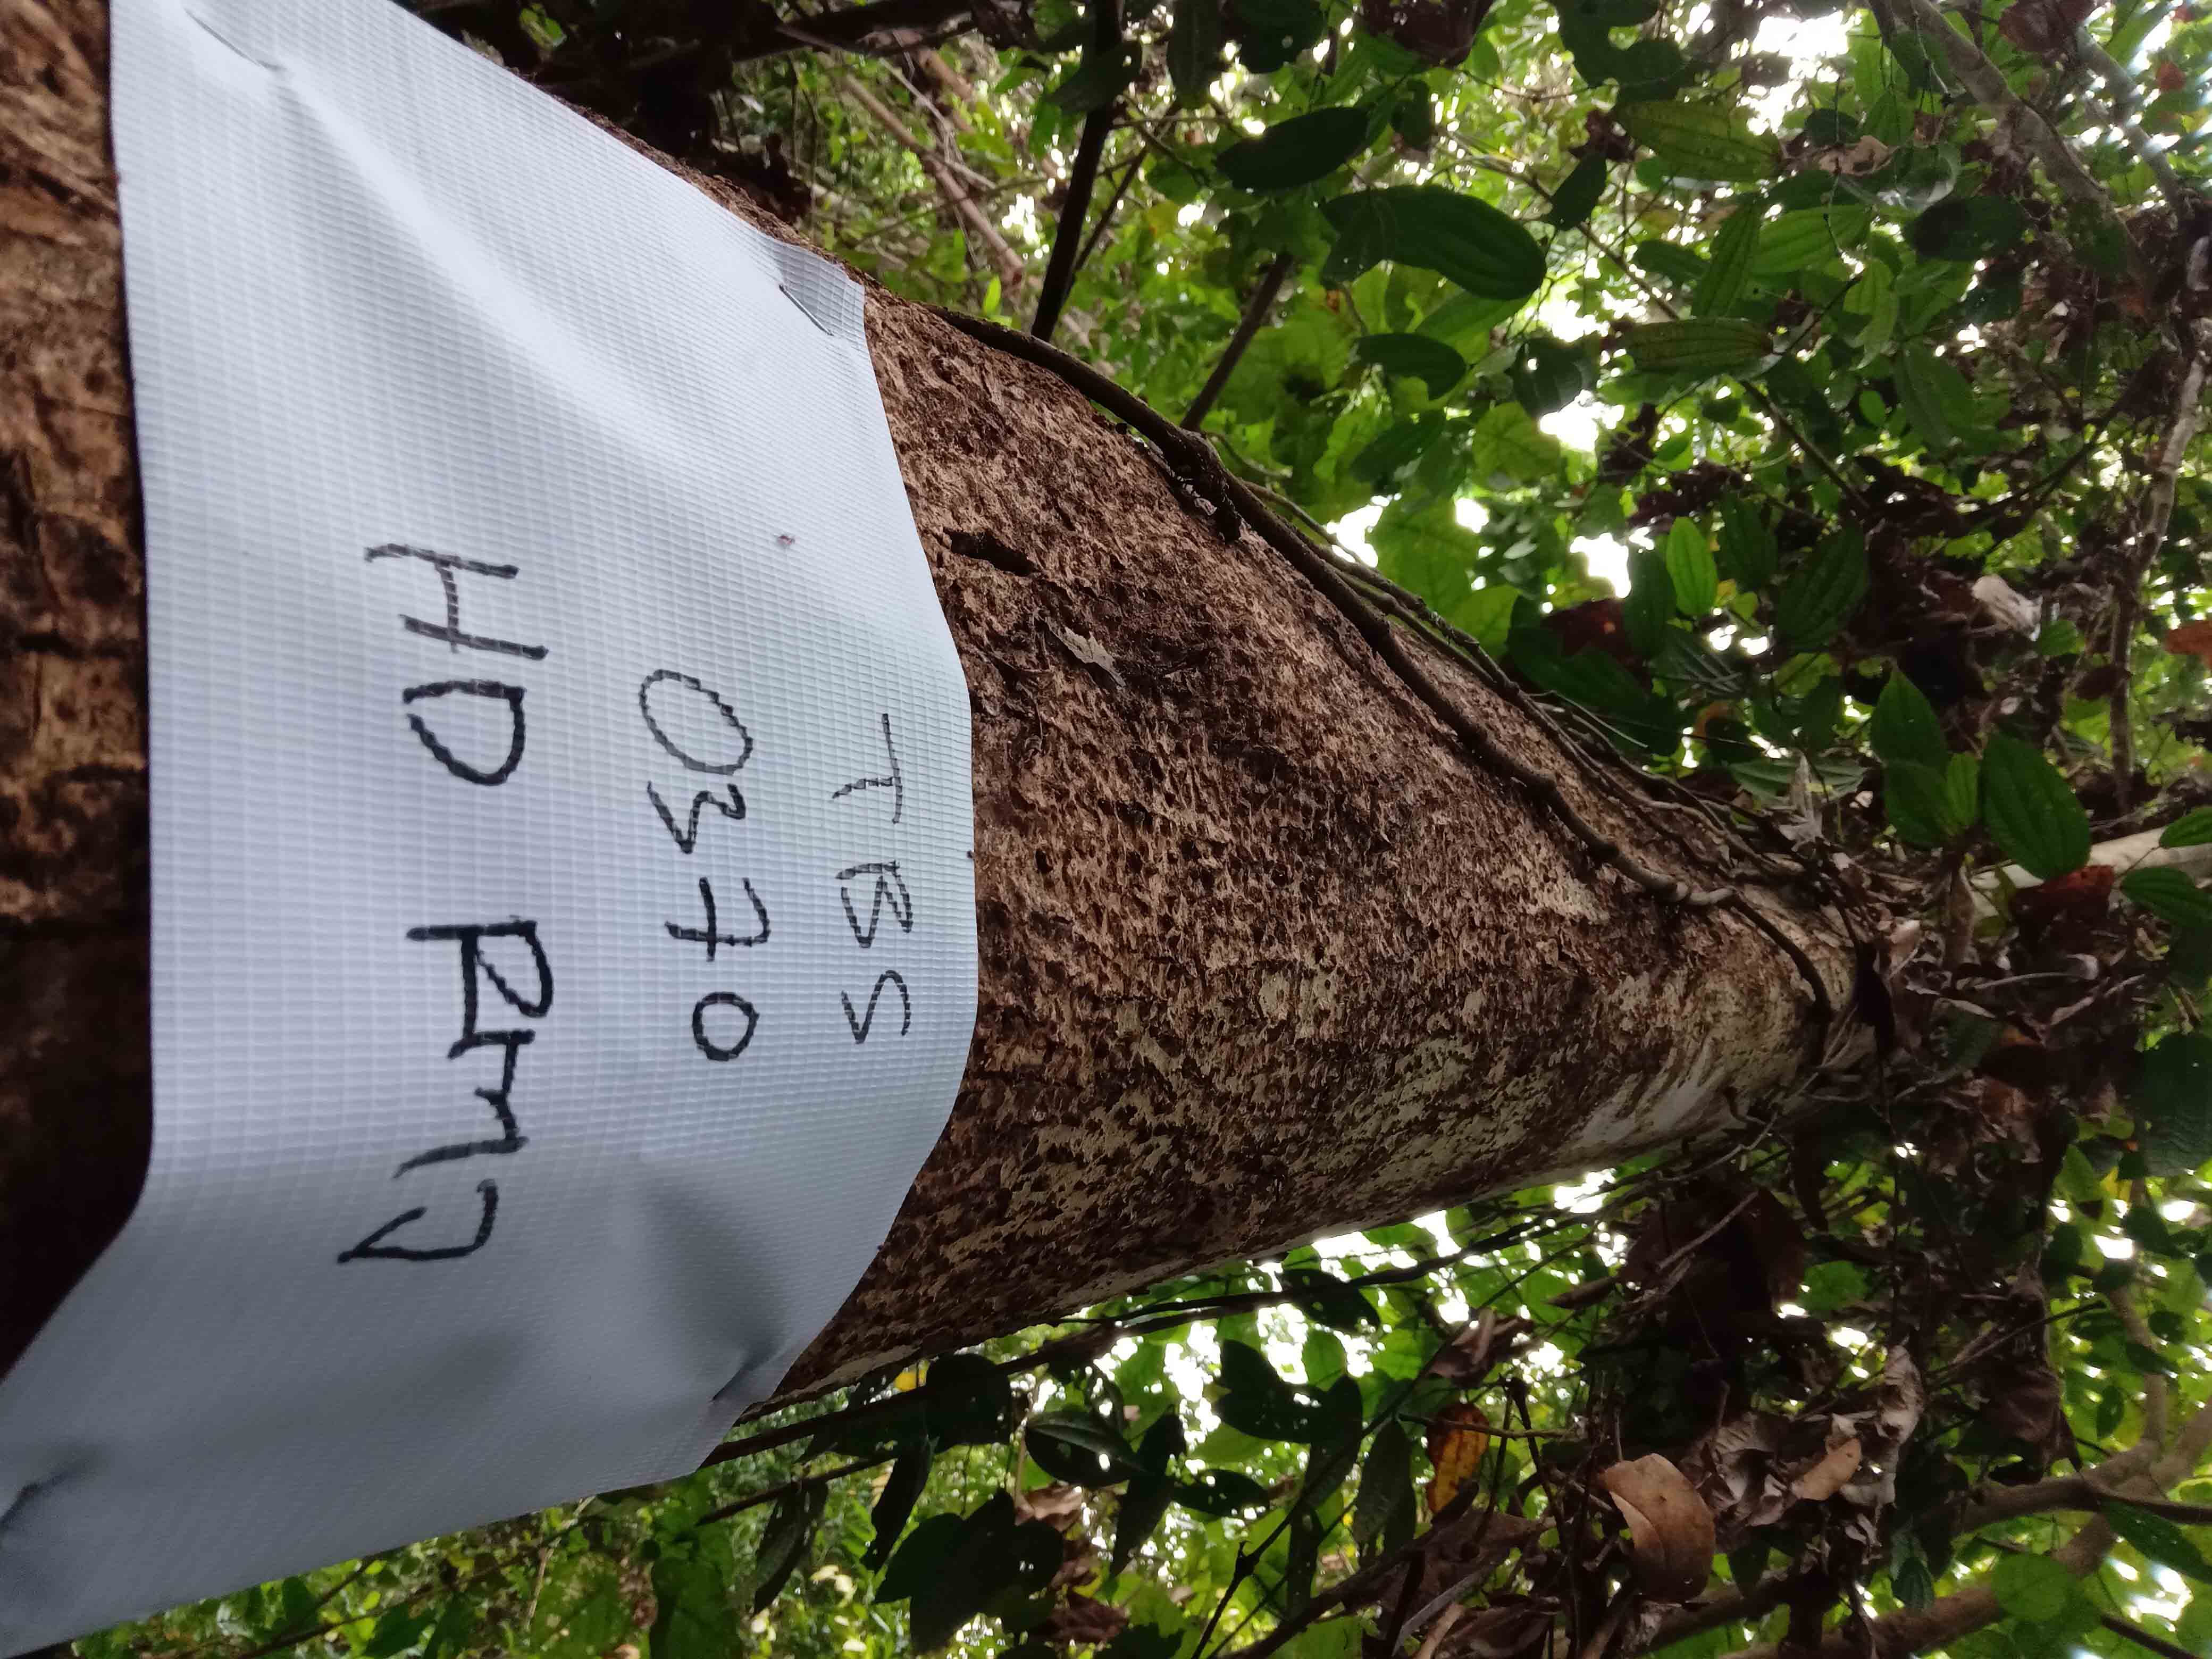 TBS
0370
HD RmJ